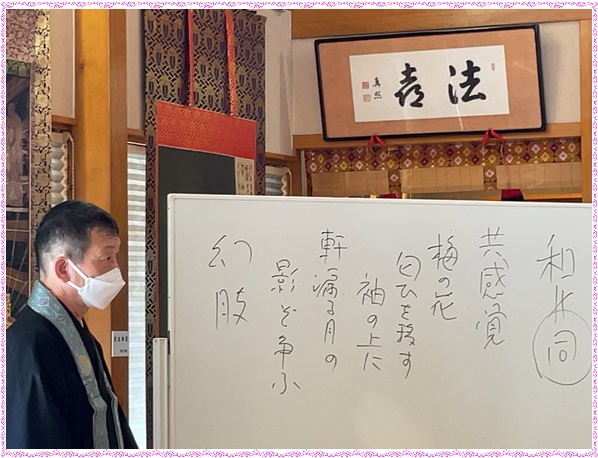 法喜
和≠同
共感覚
梅の花
匂ひを移す
袖の上に
軒漏る月の
影ぞ争ふ
幻肢